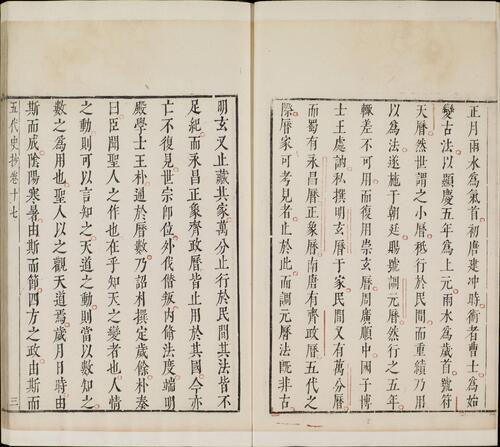 正月雨水爲氣首初唐建中時術者曹士蒍始
變古法以顯慶五年爲上元雨水爲歲首號符
天曆然世謂之小曆秪行於民間而重績乃用
以爲法遂施于朝廷賜號調元曆然行之五年
輒差不可用而復用崇玄曆周廣順中國子博
士王處訥私撰明玄曆于家民間又有萬分曆
而蜀有永昌曆正象曆南唐有齊政曆五代之
際曆家可考見者止於此而調元曆法既非古
明玄又止藏其家萬分止行於民間其法皆不
足紀而永昌正象齊政曆皆止用於其國今亦
亡不復見世宗即位外伐僭叛內脩法度端明
殿學士王朴通於曆數乃詔朴撰定歲餘朴奏
曰臣聞聖人之作也在乎知天之變者也人情
之動則可以言知之天道之動則當以數知之
數之爲用也聖人以之觀天道焉歲月日時由
斯而成陰陽寒暑由斯而節四方之政由斯而
五代史抄卷十七 三